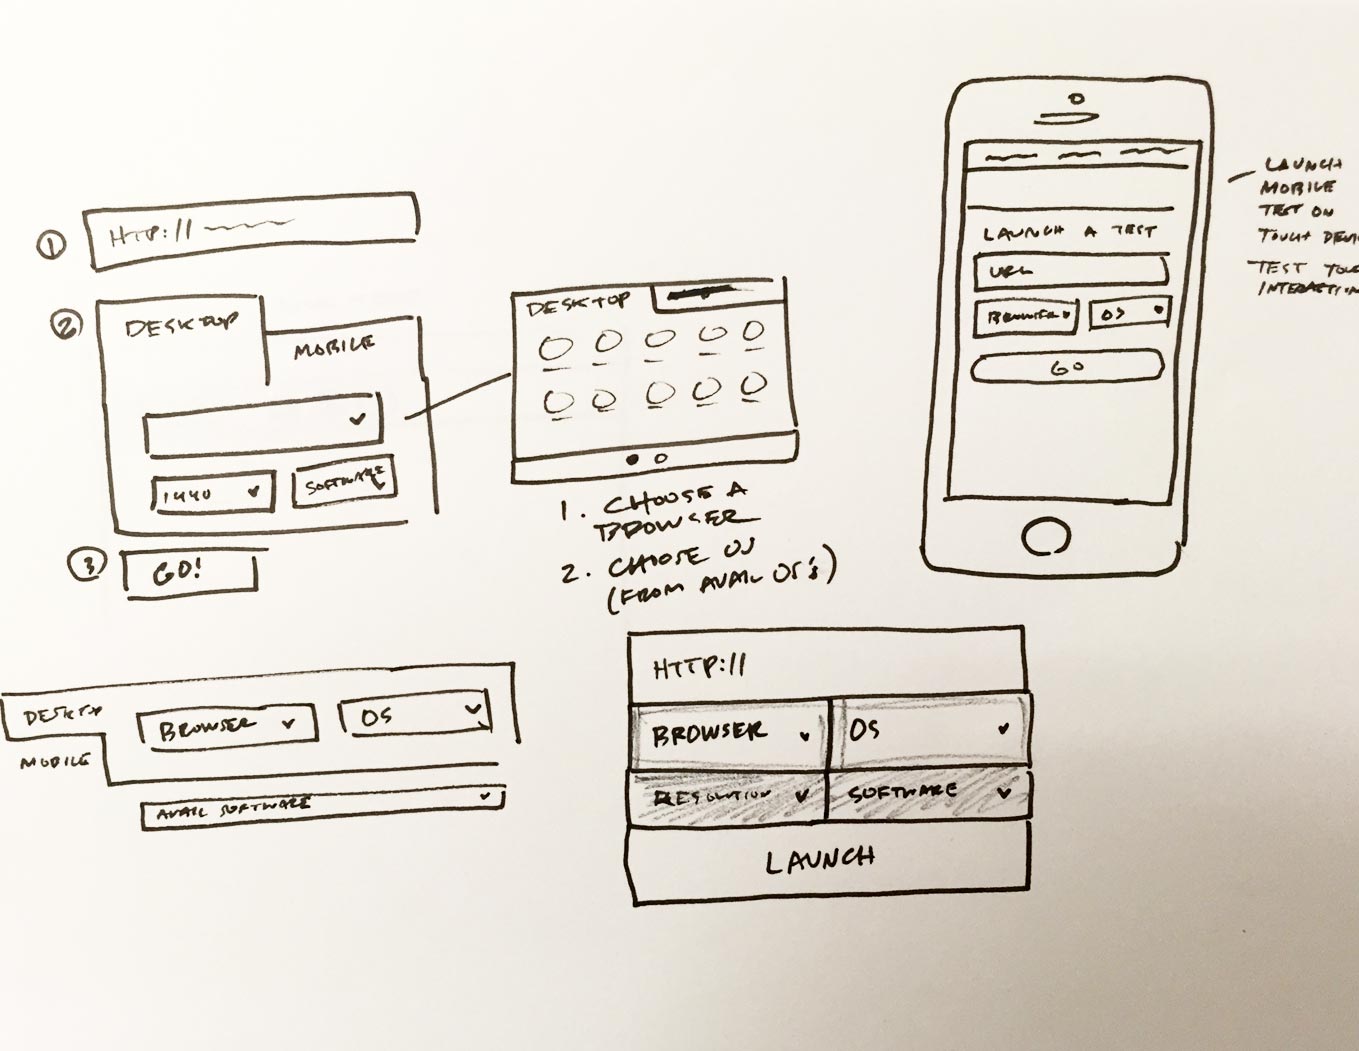 1
HTTP://
2
DESKTOP
MOBILE
1440
SOFTWARE
3
GO!
DESKTOP
1. CHOOSE A
BROWSER
2. CHOOSE OS
(FROM AVAIL OS'S)
LAUNCH A TEST
URL
BROWSER OS
GO
LAUNCH
MOBILE
TEST ON
TOUCH
TEST
DESKTOP
MOBILE
BROWSER OS
AVAIL SOFTWARE
HTTP://
BROWSER OS
RESOLUTION SOFTWARE
LAUNCH